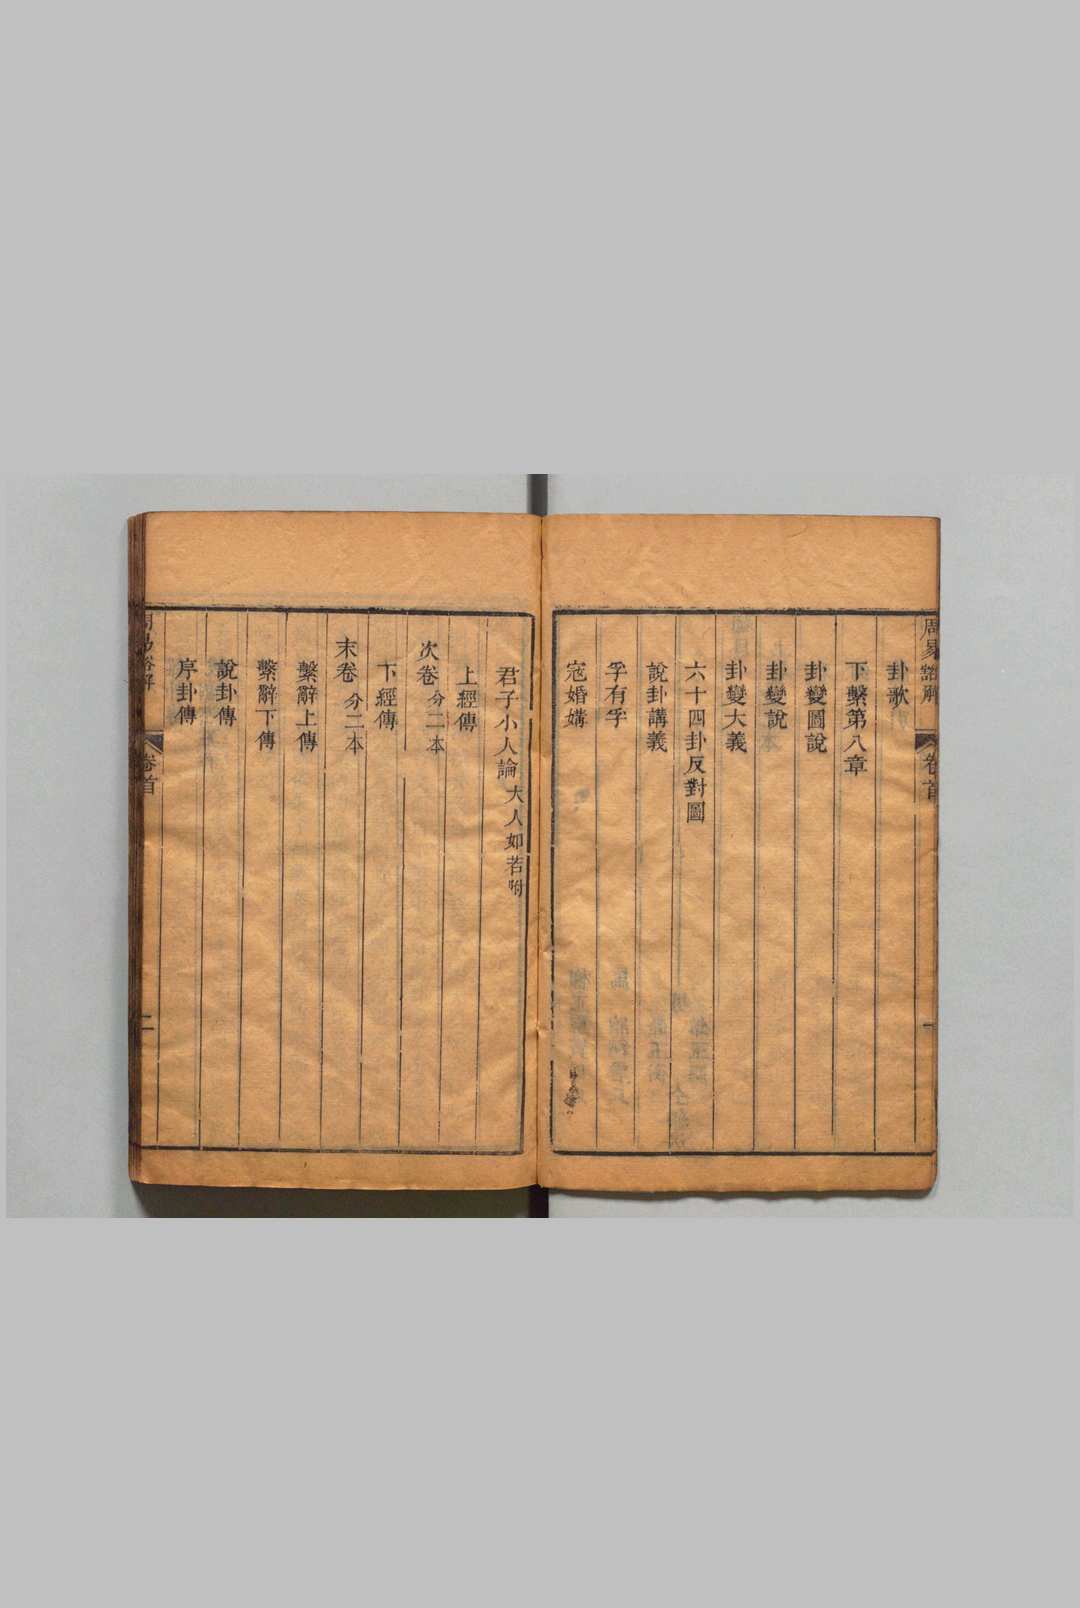 周易詻解
卷首
一
卦歌
下繫第八章
卦變圖說
卦變說
卦變大義
六十四卦反對圖
說卦講義
孚有孚
寇婚媾
君子小人論 大人如若附
上經傳
次卷 分二本
下經傳
末卷 分二本
繫辭上傳
繫辭下傳
說卦傳
序卦傳
卷首
二